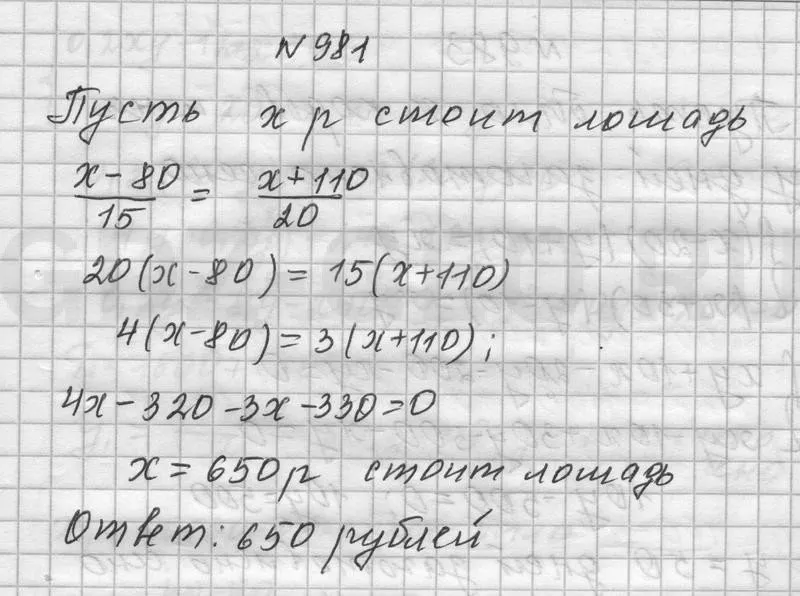 N 981
Пусть x р стоит лошадь
x - 80 / 15 = x + 110 / 20
20(x - 80) = 15(x + 110)
4(x - 80) = 3(x + 110);
4x - 320 - 3x - 330 = 0
x = 650 р стоит лошадь
Ответ: 650 рублей